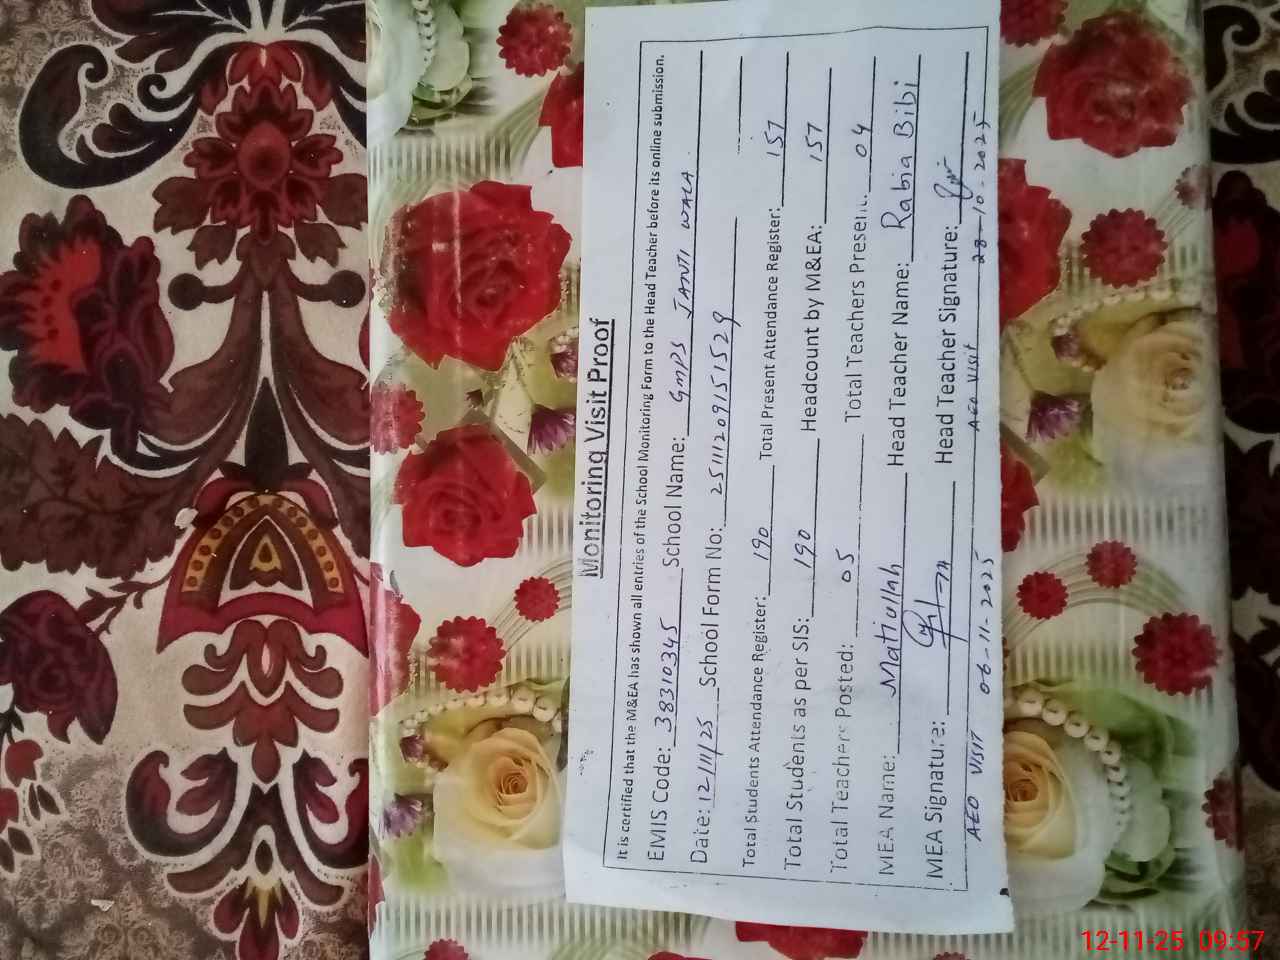 Monitoring Visit Proof
It is certified that the M&EA has shown all entries of the School Monitoring Form to the Head Teacher before its online submission.
EMIS Code: 38310345 School Name: GMPS JANTI WALA
Date: 12/11/25 School Form No: 25111209151529
Total Students Attendance Register: 190 Total Present Attendance Register: 157
Total Students as per SIS: 190 Headcount by M&EA: 157
Total Teachers Posted: 05 Total Teachers Present: 04
MEA Name: Matiullah Head Teacher Name: Rabia Bibi
MEA Signature: Head Teacher Signature:
AEO VISIT 06-11-2025 AEO Visit 28-10-2025
12-11-25 09:57